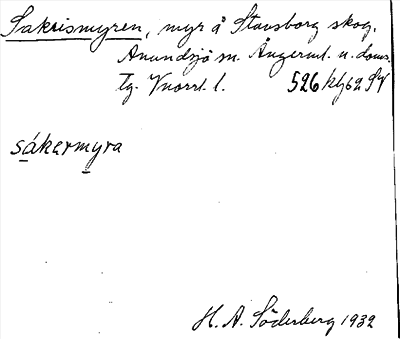 Sakrismyren, myr å Stavsborg skog.
Anundsjö sn. Ångerml. n. doms.
tg. Vnorrl. l. 526 kbl 62 SV
sákermyra
H. A. Söderberg 1932